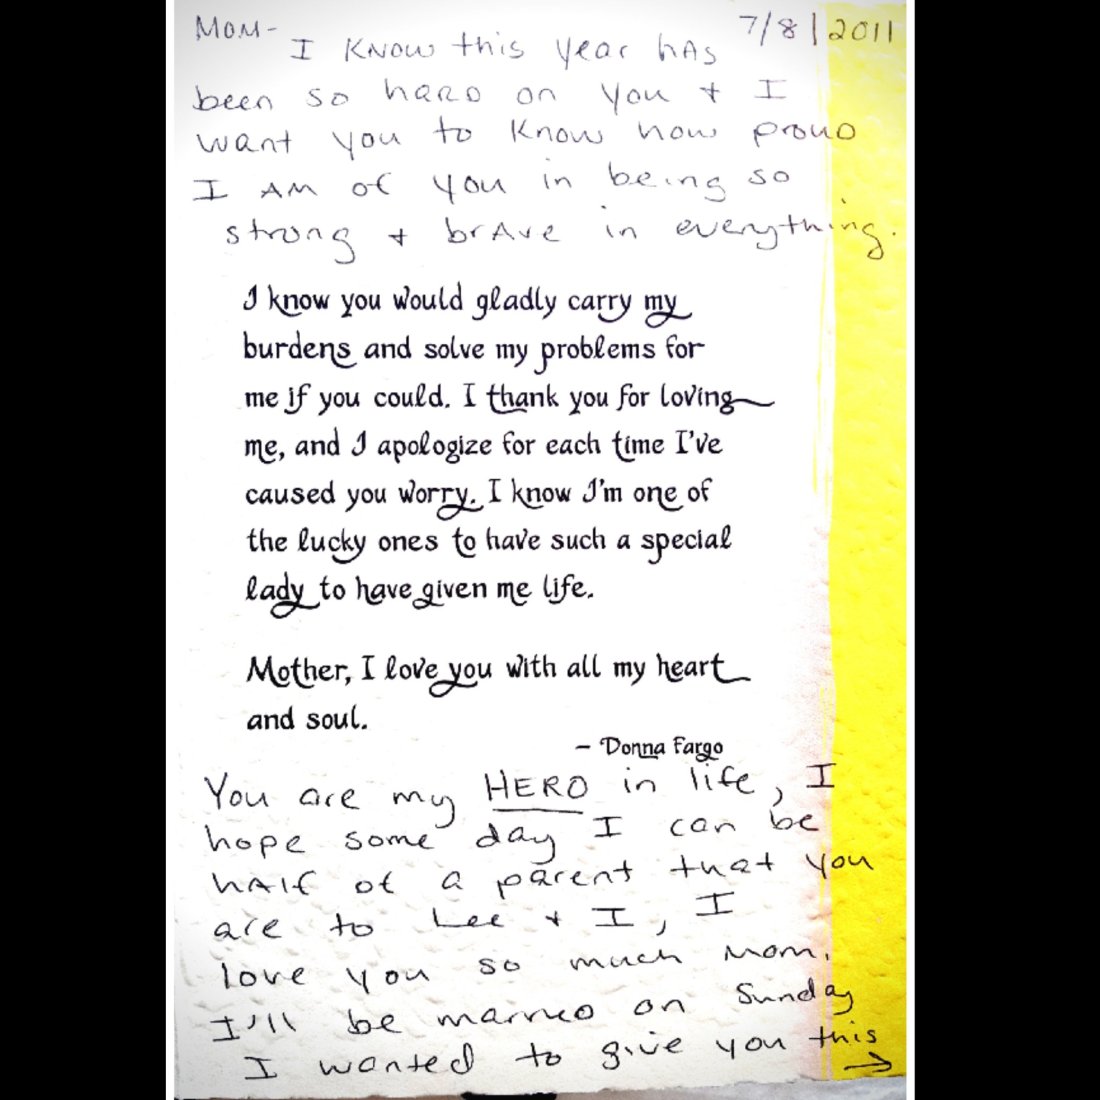 Mom- 7/8/2011
I know this year has
been so hard on you + I
want you to know how proud
I am of you in being so
strong + brave in everything.
I know you would gladly carry my
burdens and solve my problems for
me if you could. I thank you for loving
me, and I apologize for each time I've
caused you worry. I know I'm one of
the lucky ones to have such a special
lady to have given me life.
Mother, I love you with all my heart
and soul.
- Donna Fargo
You are my HERO in life, I
hope some day I can be
half of a parent that you
are to Lee + I, I
love you so much Mom.
I'll be married on Sunday
I wanted to give you this
→